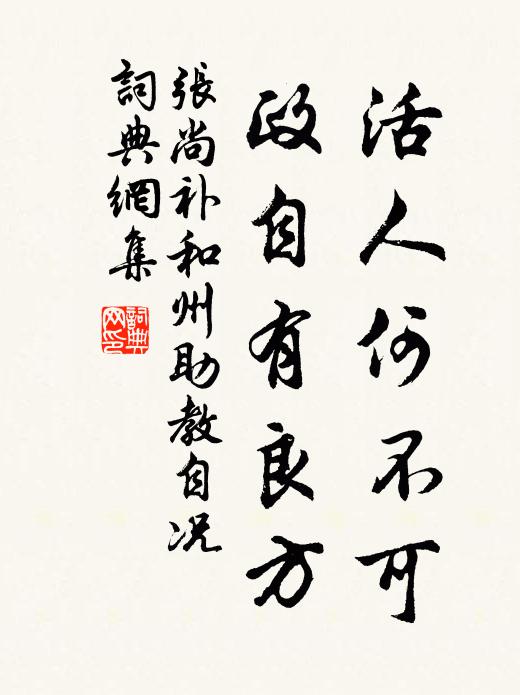 活人何不可
政自有良方
張尚补和州助教自况
詞典網集
詞典网印